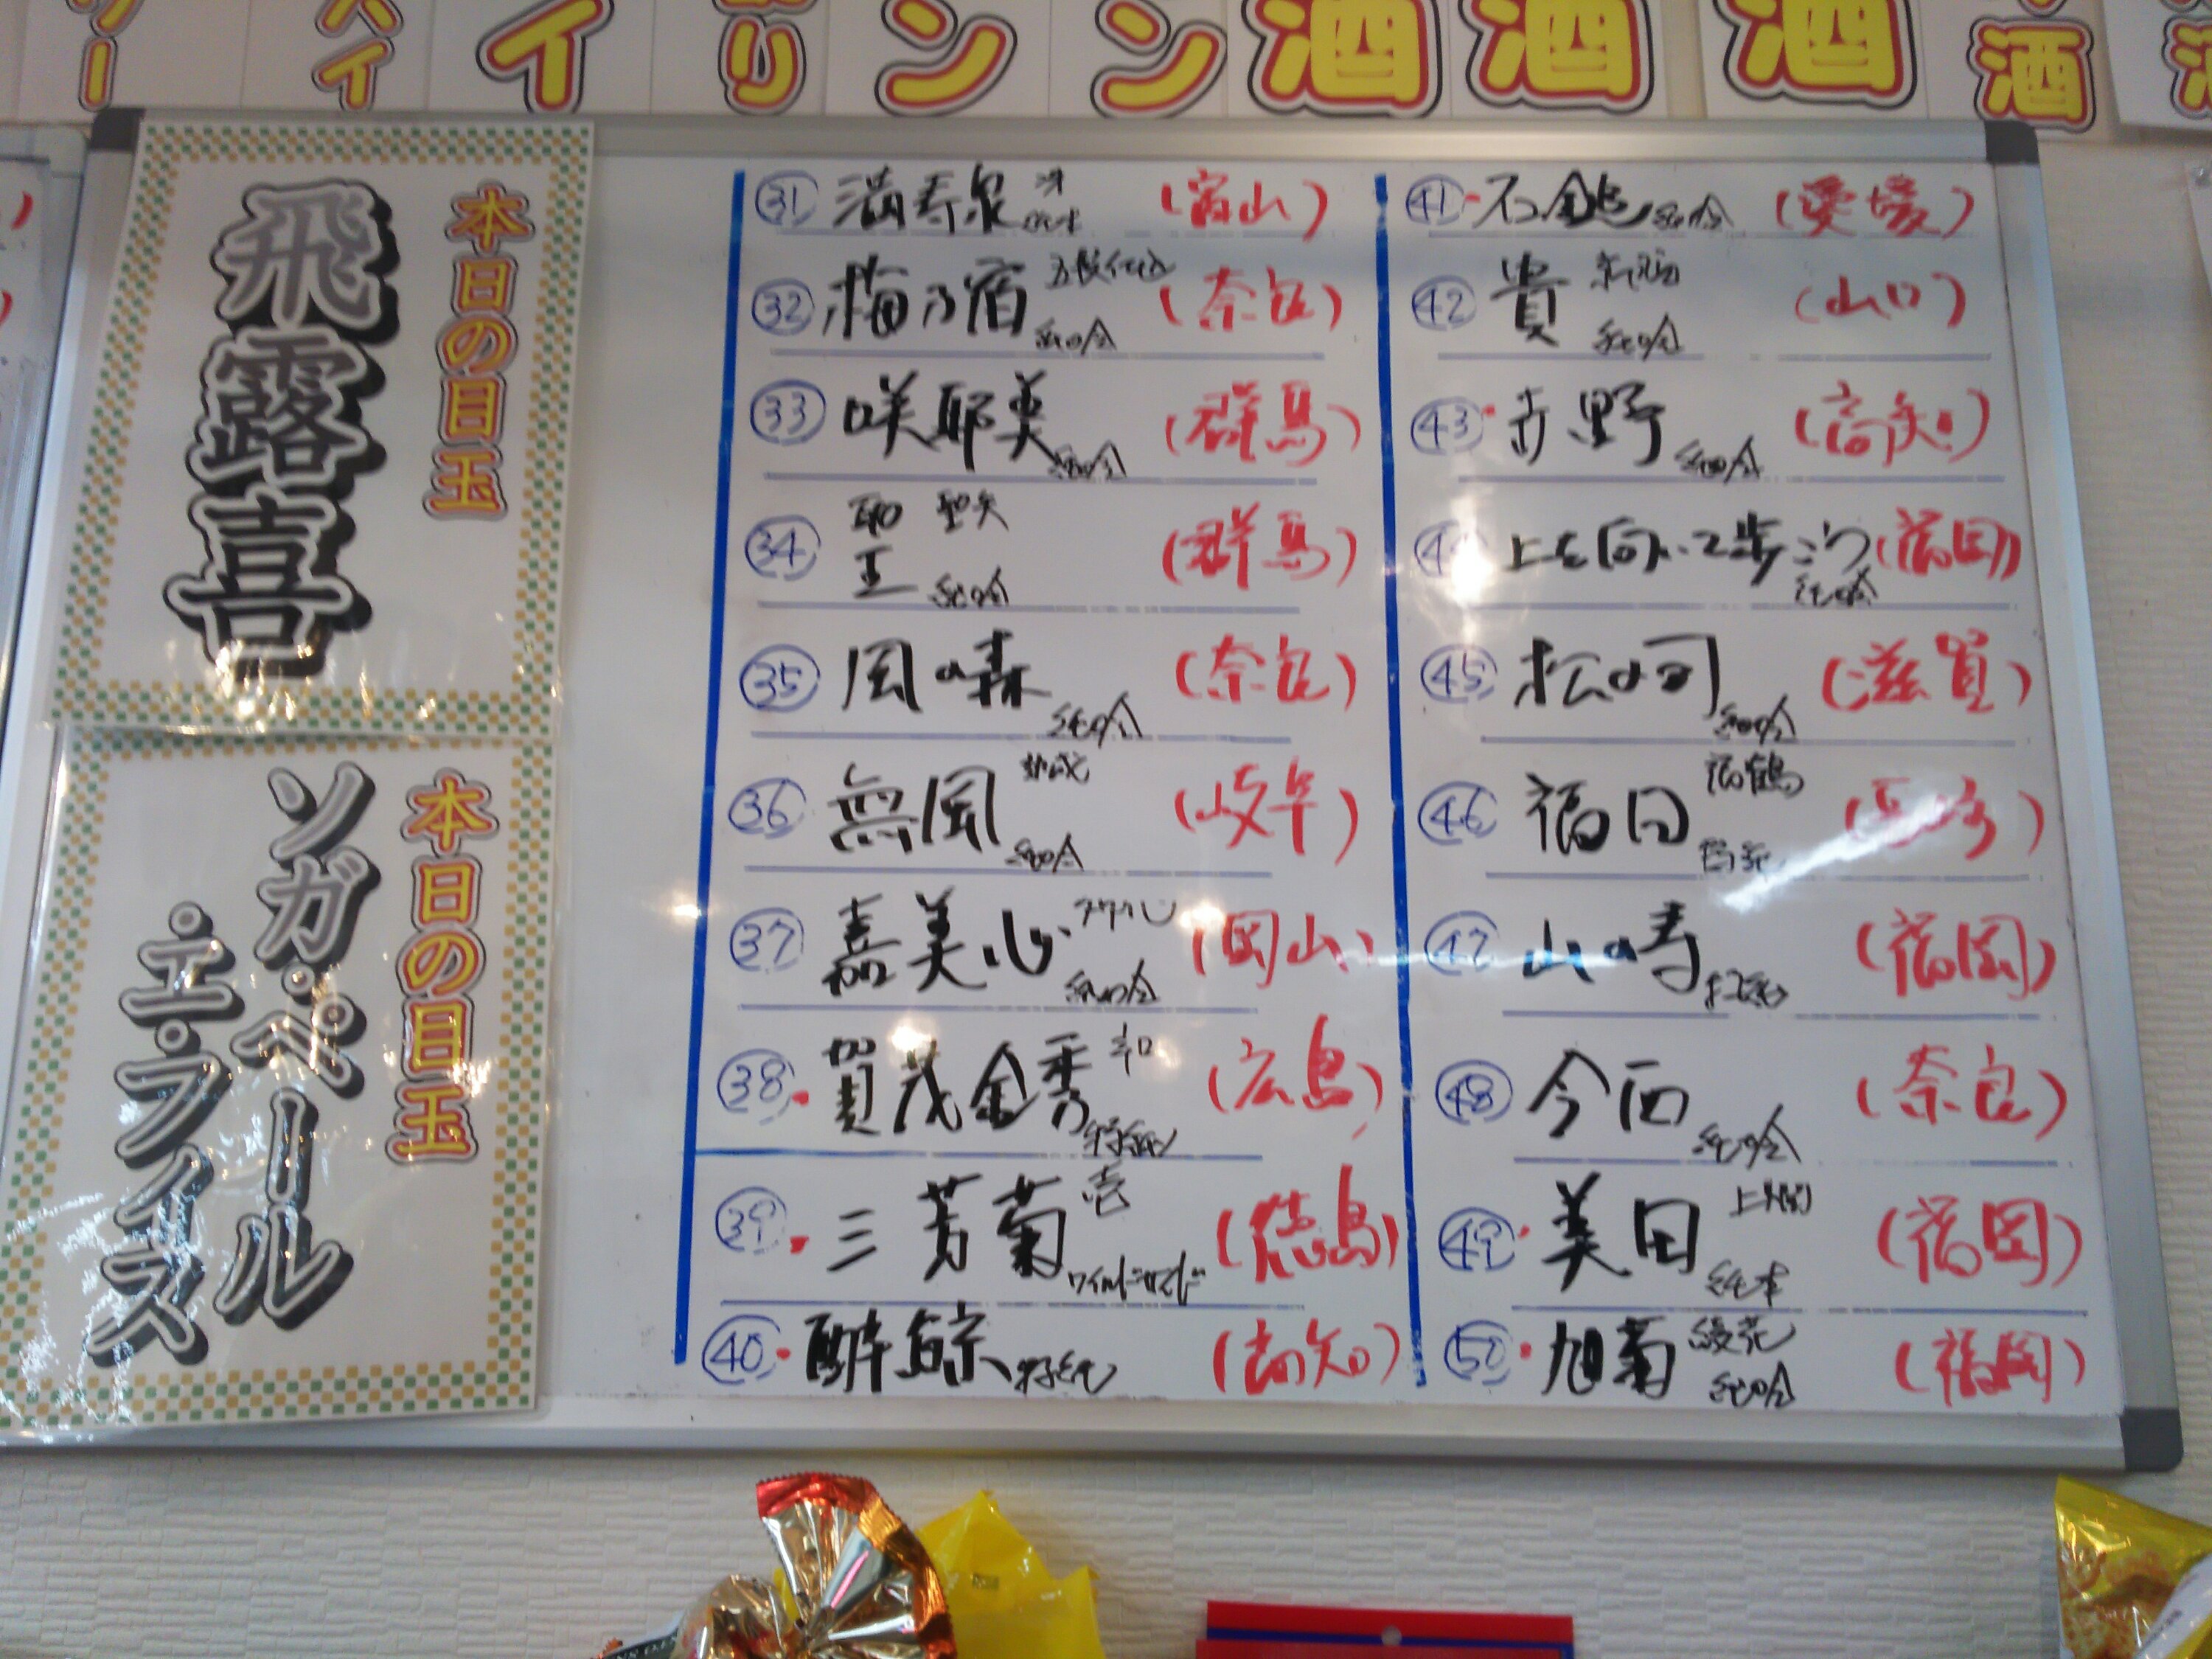 イ
ン
ン
酒
酒
酒
酒
本日の目玉
飛露喜
本日の目玉
ソガ・ペール
エ・フィス
㉛ 満寿泉 純米 (富山)
㉜ 梅乃宿 純吟 (奈良)
㉝ 咲耶美 純吟 (群馬)
㉞ 聖 純吟 (群馬)
㉟ 風の森 純吟 (奈良)
㊱ 無風 熟成 純吟 (岐阜)
㊲ 嘉美心 純吟 (岡山)
㊳ 賀茂金秀 辛口 特純 (広島)
㊴ 三芳菊 壱 ワイルドサイド (徳島)
㊵ 酔鯨 特純 (高知)
㊶ 石鎚 純吟 (愛媛)
㊷ 貴 純吟 (山口)
㊸ 赤野 純吟 (高知)
上を向いて歩こう 純吟 (福岡)
㊺ 松の司 純吟 (滋賀)
㊻ 福田 福鶴
㊼ 山の寿 (福岡)
㊽ 今西 純吟 (奈良)
㊾ 美田 純米 (福岡)
㊿ 旭菊 綾花 純吟 (福岡)